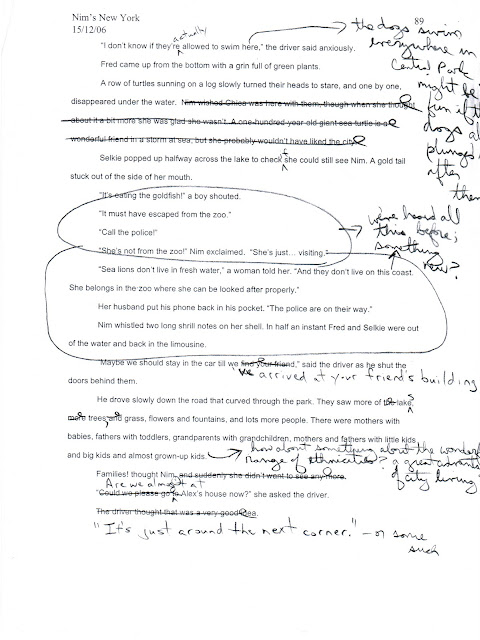 Nim's New York
15/12/06
89
actually
"I don't know if they're allowed to swim here," the driver said anxiously.
Fred came up from the bottom with a grin full of green plants.
A row of turtles sunning on a log slowly turned their heads to stare, and one by one,
disappeared under the water. Nim wished Chica was here with them, though when she thought
about it a bit more she was glad she wasn't. A one-hundred-year old giant sea turtle is a
wonderful friend in a storm at sea, but she probably wouldn't have liked the city.
Selkie popped up halfway across the lake to check she could still see Nim. A gold tail
stuck out of the side of her mouth.
"It's eating the goldfish!" a boy shouted.
"It must have escaped from the zoo."
"Call the police!"
"She's not from the zoo!" Nim exclaimed. "She's just... visiting."
"Sea lions don't live in fresh water," a woman told her. "And they don't live on this coast.
She belongs in the zoo where she can be looked after properly."
Her husband put his phone back in his pocket. "The police are on their way."
Nim whistled two long shrill notes on her shell. In half an instant Fred and Selkie were out
of the water and back in the limousine.
"Maybe we should stay in the car till we find your friend," said the driver as he shut the
doors behind them.
He drove slowly down the road that curved through the park. They saw more of the lake,
more trees, and grass, flowers and fountains, and lots more people. There were mothers with
babies, fathers with toddlers, grandparents with grandchildren, mothers and fathers with little kids
and big kids and almost grown-up kids.
Families! thought Nim, and suddenly she didn't want to see any more.
Are we almost at
"Could we please go to Alex's house now?" she asked the driver.
The driver thought that was a very good idea.
"It's just around the next corner." - or some
such
the dogs swim
everywhere in
Central Park
might be
fun if the
dogs all
plunged
after
them
we've heard all
this before;
something
new?
we arrived at your friend's building
how about something about the wonderful
range of ethnicities?
a great
of city living